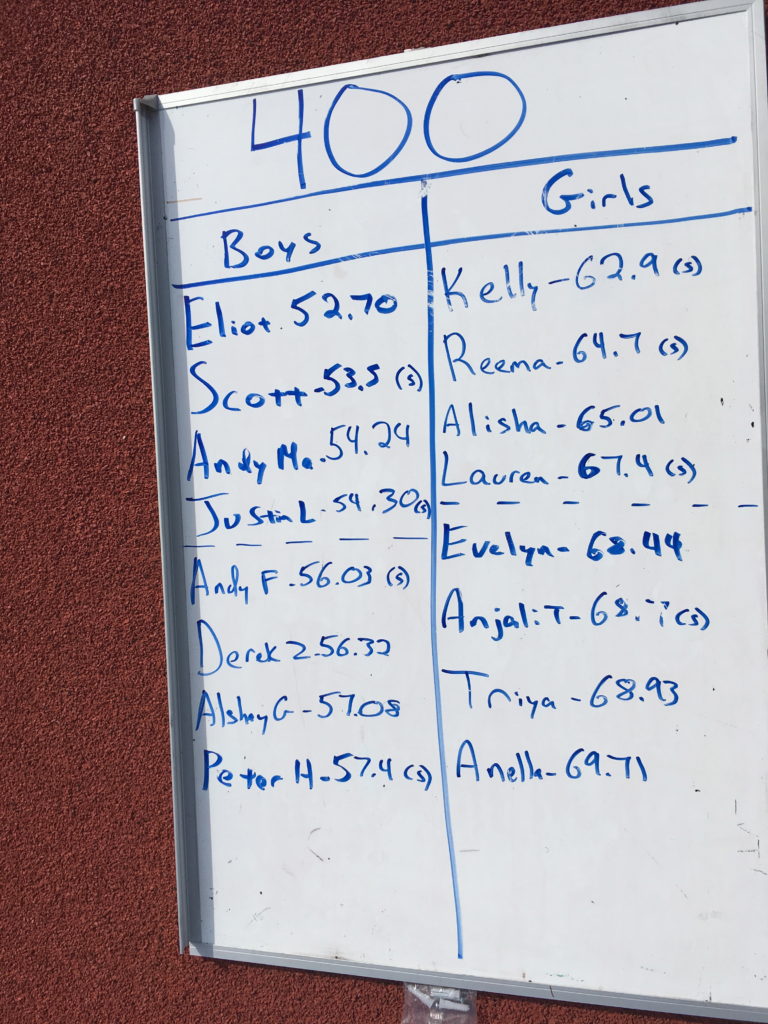 400
Boys
Eliot. 52.70
Scott - 53.5 (s)
Andy Ma. 54.24
Justin L - 54.30(s)
Andy F - 56.03 (s)
Derek Z - 56.32
G - 57.08
Peter H - 57.4 (s)
Girls
Kelly - 62.9 (s)
Reema - 64.7 (s)
Alisha - 65.01
Lauren - 67.4 (s)
Evelyn - 68.44
Anjali T - (s)
Triya - 68.93
Anella - 69.71